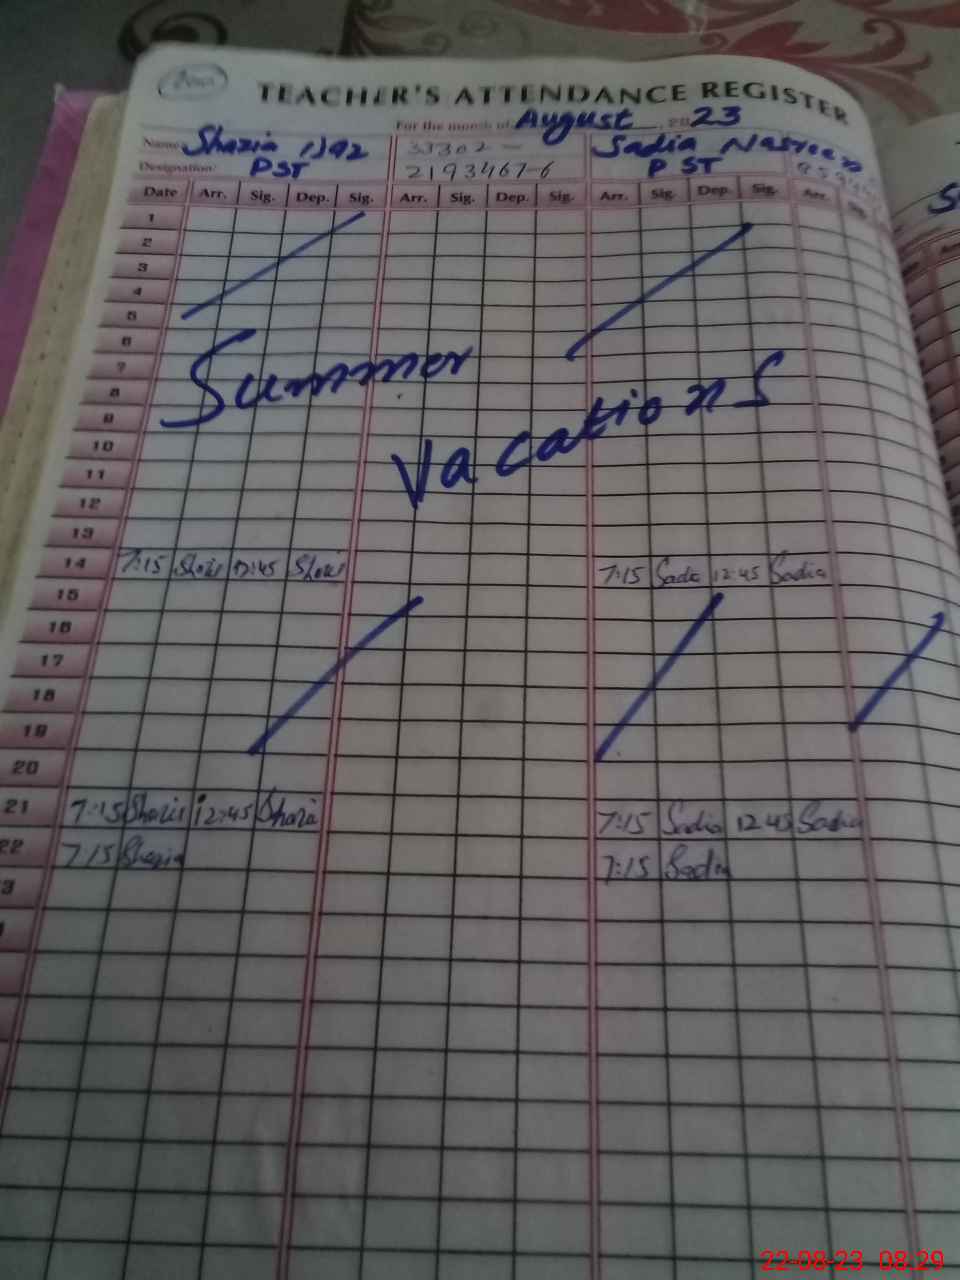 TEACHER'S ATTENDANCE REGISTER
For the month of August, 2023
Name: Shazia 33302 — Sadia Nasreen
Designation: PST 2193467-6 PST
Date Arr. Sig. Dep. Sig. Arr. Sig. Dep. Sig. Arr. Sig. Dep. Sig. Arr. Sig.
1
2
3
4
5
6
7
Summer
8
9
Vacations
10
11
12
13
14 7:15 12:45 7:15 Sadia 12:45 Sadia
15
16
17
18
19
20
21 7:15 Shazia 12:45 Shazia 7:15 Sadia 12 45 Sadia
22 7 15 Shazia 7:15 Sadia
3
22-08-23 08.29